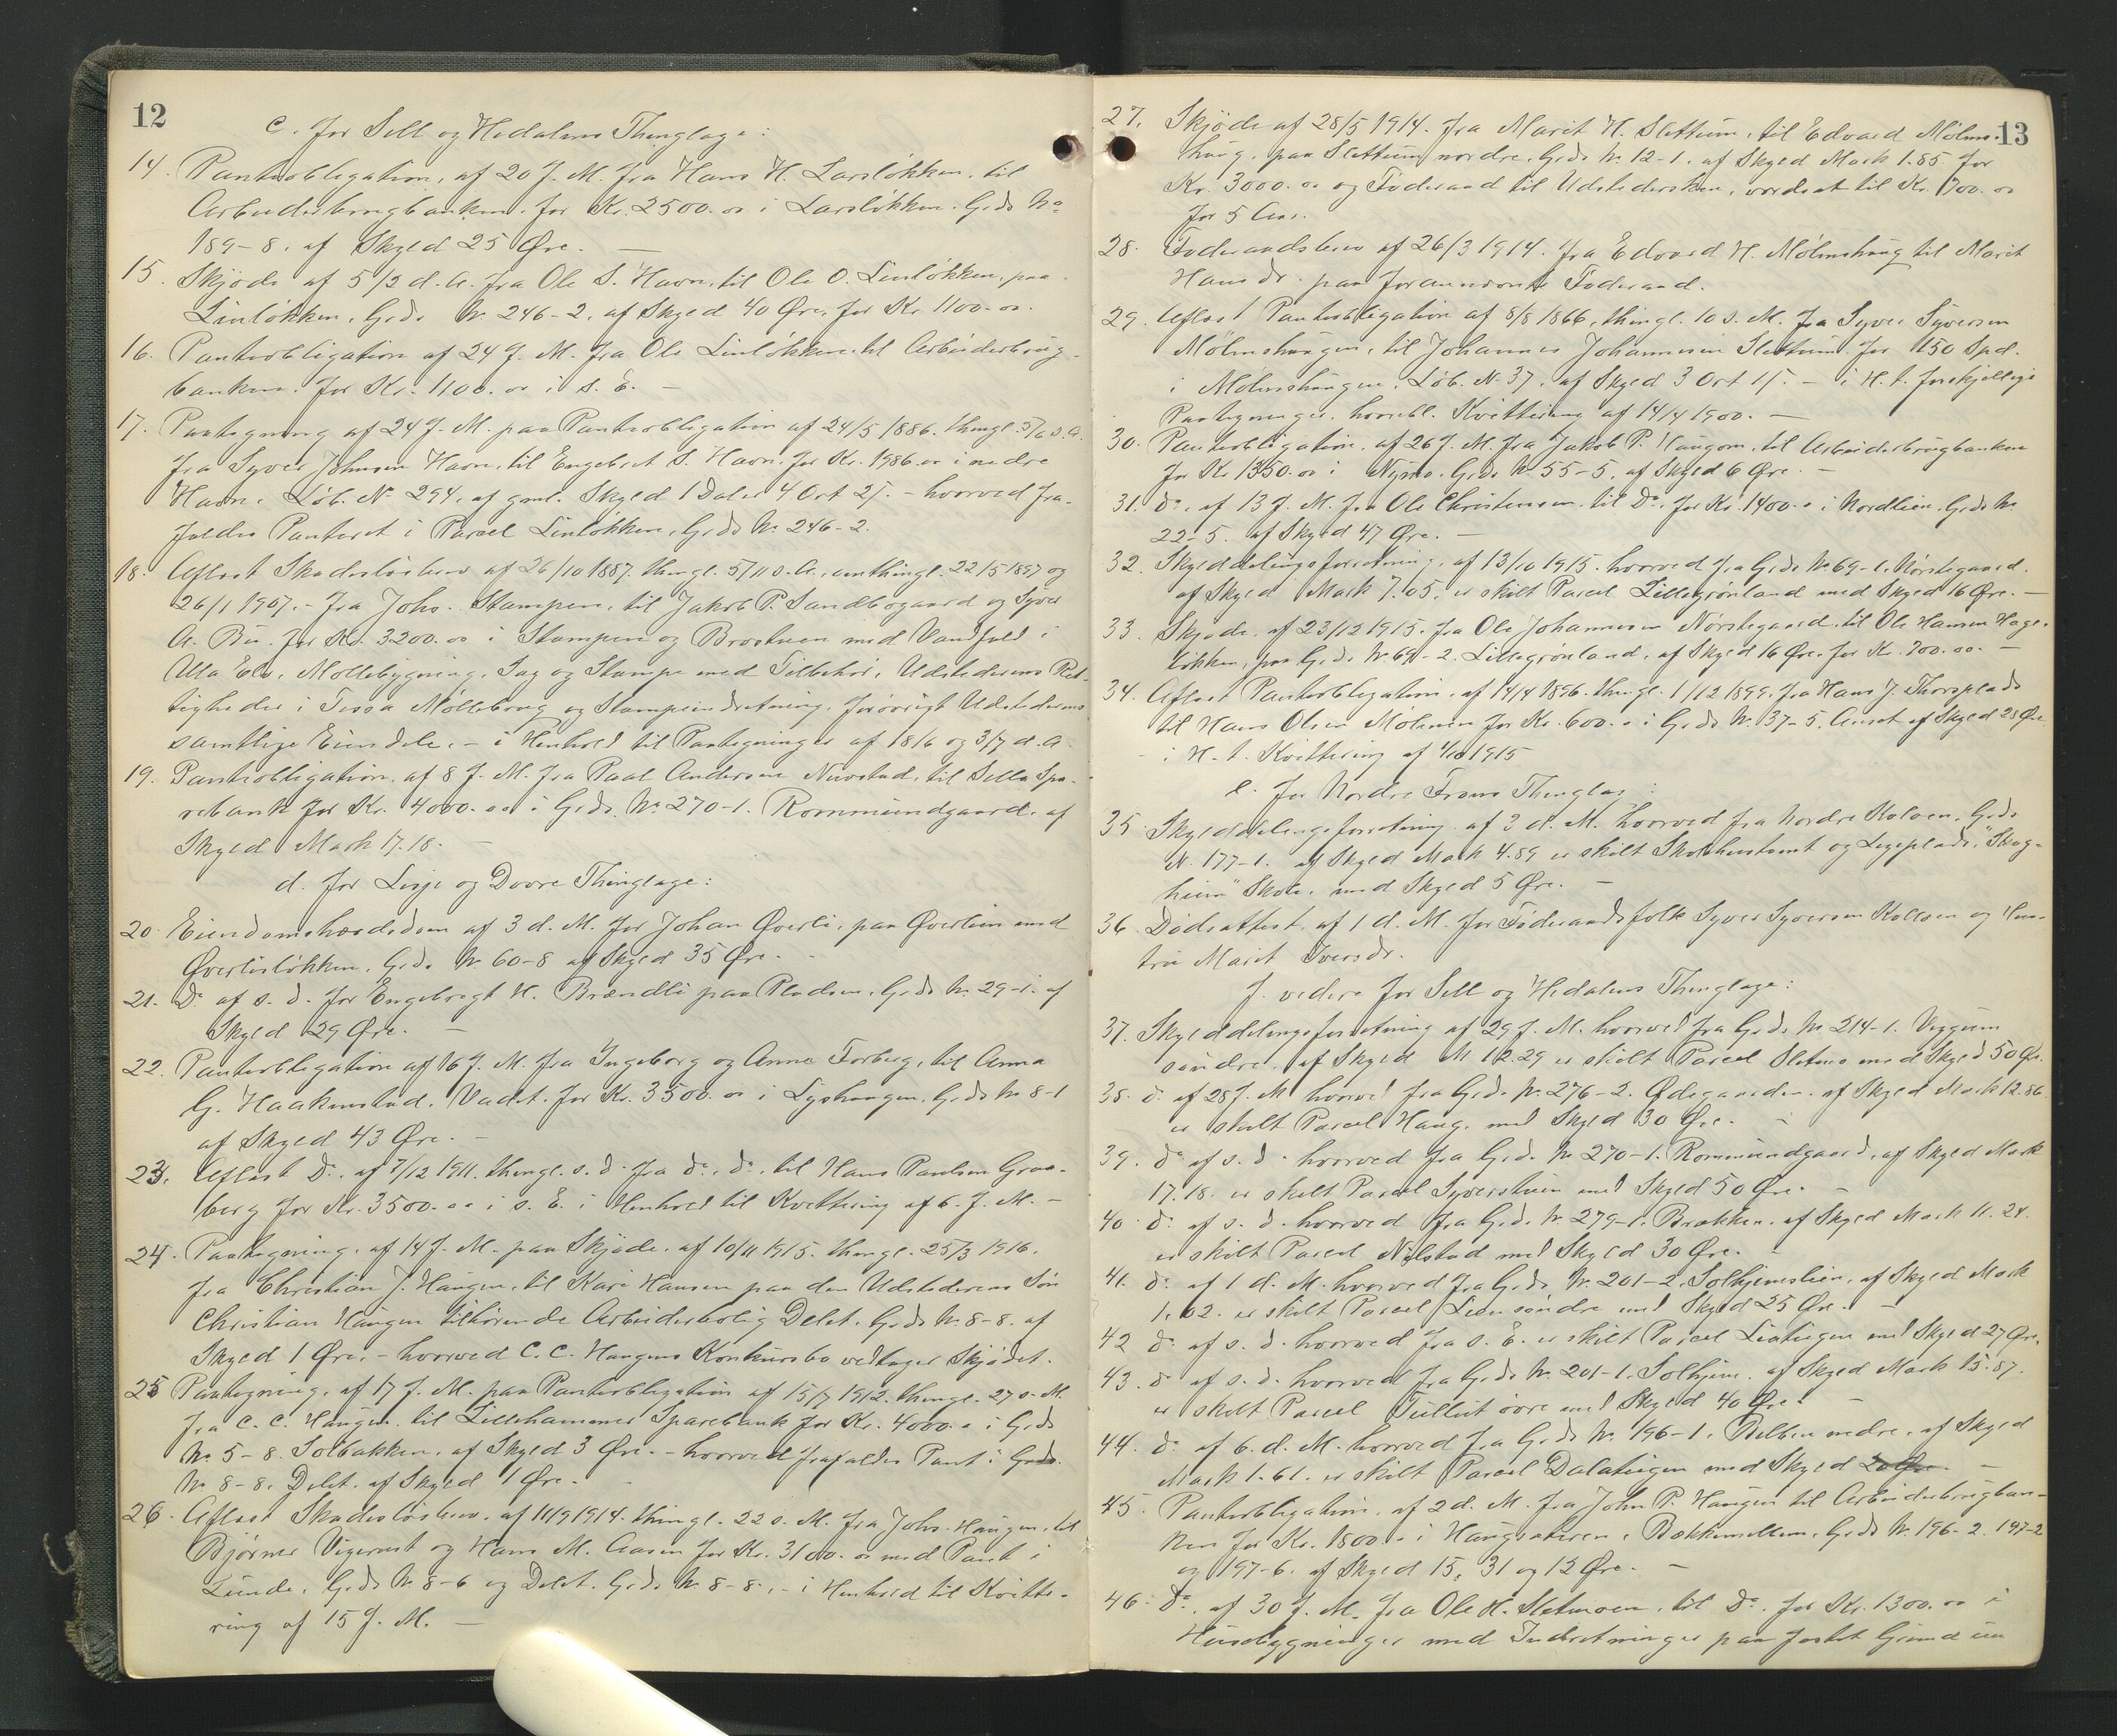 12
c. for Sell og Hedalens Thinglage:
14. Pantobligation, af 20 f. M. fra Hans H. Larsløkken, til
Arbeiderbrugbanken, for Kr. 2500.00 i Larsløkken, G.do No
189-8, af Skyld 25 Øre. —
15. Skjøde af 5/2 d. A. fra Ole S. Havn, til Ole O. Linløkken, paa
Linløkken, G.do No 246-2, af Skyld 40 Øre, for Kr. 1100.00.
16. Pantobligation af 24 f. M. fra Ole Linløkken til Arbeiderbrug-
banken, for Kr. 1100.00 i s. E. —
17. Paategning af 24 f. M. paa Pantobligation af 24/5 1886. thingl. 5/6 s. A.
fra Syver Johnsen Havn, til Engebret S. Havn, for Kr. 1986.00 i nedre
Havn, Løb. No 294, af gml. Skyld 1 Daler 4 Ort 2 f. – hvorved fra-
faldes Panteret i Parcel Linløkken, G.do No 246-2.
18. Aflæst Skadesløsbrev af 26/10 1887. thingl. 5/11 s. A., omthingl. 22/5 1897 og
26/1 1907. – fra Johs. Stampen, til Jakob P. Sandbogaard og Syver
A. Bu. for Kr. 3200.00 i Stampen og Brostuen med Vandfald i
Ulla Elv, Møllebygning, Sag og Stampe med Tilbehør, Udstederens Ret-
tigheder i Tessa Møllebrug og Stampeindretning, forøvrigt Udstederens
samtlige Eiendele. – i Henhold til Paategninger af 18/6 og 3/7 d. A.
19. Pantobligation, af 8 f. M. fra Paal Andersen Nuvstad, til Sells Spa-
rebank for Kr. 4000.00 i G.do No 270-1. Rommundgaard, af
Skyld Mark 17.18. —
d. for Lesje og Dovre Thinglage:
20. Eiendomshævdsdom af 3 d. M. for Johan Øverli, paa Øverlien med
Øverlisløkken, G.do No 60-8 af Skyld 35 Øre. –
21. Do af s. d. for Engebregt H. Brændli paa Pladsen, G.do No 29-1. af
Skyld 29 Øre. —
22. Pantobligation af 16 f. M. fra Ingeborg og Anne Forberg, til Anna
G. Haakenstad, Vadet. for Kr. 3500.00 i Lyshaugen, G.do No 8-1
af Skyld 43 Øre. –
23. Aflæst Do. af 7/12 1911. thingl. s. d. fra do. do. til Hans Paulsen Graa-
berg for Kr. 3500.00 i s. E. i Henhold til Kvittering af 6. f. M. –
24. Paategning, af 14 f. M. paa Skjøde, af 10/11 1915. thingl. 25/3 1916.
fra Christian J. Haugen, til Kari Hansen paa den Udstederens Søn
Christian Haugen tilhørende Arbeiderbolig Delet. G.do No. 8-8. af
Skyld 1 Øre, – hvorved C. C. Haugens Konkursbo vedtager Skjødet.
25 Paategning, af 17 f. M. paa Pantobligation af 15/7 1912. thingl. 27 s. M.
fra C. C. Haugen, til Lillehammer Sparebank for Kr. 4000.00 i G.do
No 5-8. Solbakken, af Skyld 3 Øre. – hvorved frafaldes Pant i G.do
No 8-8. Delet. af Skyld 1 Øre. –
26. Aflæst Skadesløsbrev, af 11/9 1914. thingl. 22 s. M. fra Johs. Haugen, til
Bjørner Vigerust og Hans M. Aasen for Kr. 3100.00 med Pant i
Lunde, G.do No 8-6 og Delet. G.do No 8-8. – i Henhold til Kvitte-
ring af 15 f. M. —
13
27. Skjøde af 28/5 1914. fra Marit H. Slettum, til Edvard Mølms-
haug, paa Slettum nordre, G.do No 12-1. af Skyld Mark 1.85 for
Kr. 3000.00 og Føderaad til Udstedersken, værdsat til Kr. 700.00
for 5 Aar.
28. Føderaadsbrev af 26/3 1914. fra Edvard H. Mølmshaug til Marit
Hansdr. paa forannævnte Føderaad.
29. Aflæst Pantobligation af 8/8 1866, thingl. 10 s. M. fra Syver Syversen
Mølmshaugen, til Johannes Johannesen Slettum for 150 Spd.
i Mølmshaugen, Løb. No 37, af Skyld 3 Ort 1 f. – i H. t. forskjellige
Paategninger, hvoribl. Kvittering af 14/4 1900. —
30. Pantobligation, af 26 f. M. fra Jakob P. Haugom, til Arbeiderbrugbanken
for Kr. 1350.00 i Nymo. G.do No 55-5, af Skyld 6 Øre. –
31. do. af 13 f. M. fra Ole Christensen, til Do. for Kr. 1400.00 i Nordlien, G.do No
22-5. af Skyld 47 Øre. –
32. Skylddelingsforretning, af 13/10 1915. hvorved fra G.do No 69-1. Nørstegaard.
af Skyld Mark 7.05, er skilt Parcel Lillegrønland med Skyld 16 Øre. –
33. Skjøde af 23/12 1915. fra Ole Johannesen Nørstegaard, til Ole Hansen Hage-
løkken, paa G.do No 69-2. Lillegrønland, af Skyld 16 Øre for Kr. 700.00. –
34. Aflæst Pantobligation, af 14/4 1896. thingl. 1/12 1899, fra Hans J. Thorsplads
til Hans Olsen Mølmen for Kr. 600.00 i G.do No 37-5. af Skyld 28 Øre
– i H. t. Kvittering af 1/10 1915
e. for Nordre Frons Thinglag:
35. Skylddelingsforretning af 2 d. M. hvorved fra Nordre Koloen, G.do
No 177-1. af Skyld Mark 4.89 er skilt Skolehustomt og Legeplads, "Skog-
heim" Skole, med Skyld 5 Øre. –
36. Dødsattest, af 1 d. M. for Føderaadsfolk Syver Syversen Kolloen og Hus-
tru Marit Iversdr.
f. videre for Sell og Hedalens Thinglage:
37. Skylddelingsforretning af 29 f. M. hvorved fra G.do No 214-1. Veggum
søndre, af Skyld M 12.29 er skilt Parcel Sletmo med Skyld 50 Øre.
38. do af 28 f. M hvorved fra G.do No 276-2. Ødegaarden, af Skyld Mark 12.86
er skilt Parcel Haug, med Skyld 30 Øre. –
39. do af s. d. hvorved fra G.do No 270-1. Rommundgaard, af Skyld Mark
17.18. er skilt Parcel Syverstuen med Skyld 50 Øre. –
40. do af s. d. hvorved fra G.do No 279-1. Brækken, af Skyld Mark 11.24.
er skilt Parcel Nylstad med Skyld 30 Øre. –
41. do af 1 d. M. hvorved fra G.do No 201-2. Solhjemslien, af Skyld Mark
1.02. er skilt Parcel Lien søndre med Skyld 25 Øre. –
42 do af s. d. hvorved fra s. E. er skilt Parcel Liateigen med Skyld 27 Øre.
43. do af s. d. hvorved fra G.do No 201-1. Solhjem, af Skyld Mark 15.87.
er skilt Parcel Tullut øvre med Skyld 40 Øre. –
44. do af 6. d. M. hvorved fra G.do No 196-1. nedre, af Skyld
Mark 1.61. er skilt Parcel Dalateigen med Skyld 20 Øre. –
45. Pantobligation, af 2 d. M. fra John P. Haugen til Arbeiderbrugban-
ken for Kr. 1800.00 i Haugsæteren, Bækkemellem, G.do No 196-2. 197-2
og 197-6. af Skyld 15, 31 og 12 Øre. –
46. Do. af 30 f. M. fra Ole H. Sletmoen, til Do. for Kr. 1300.00 i
Husebygninger med Indretninger paa festet Grund un